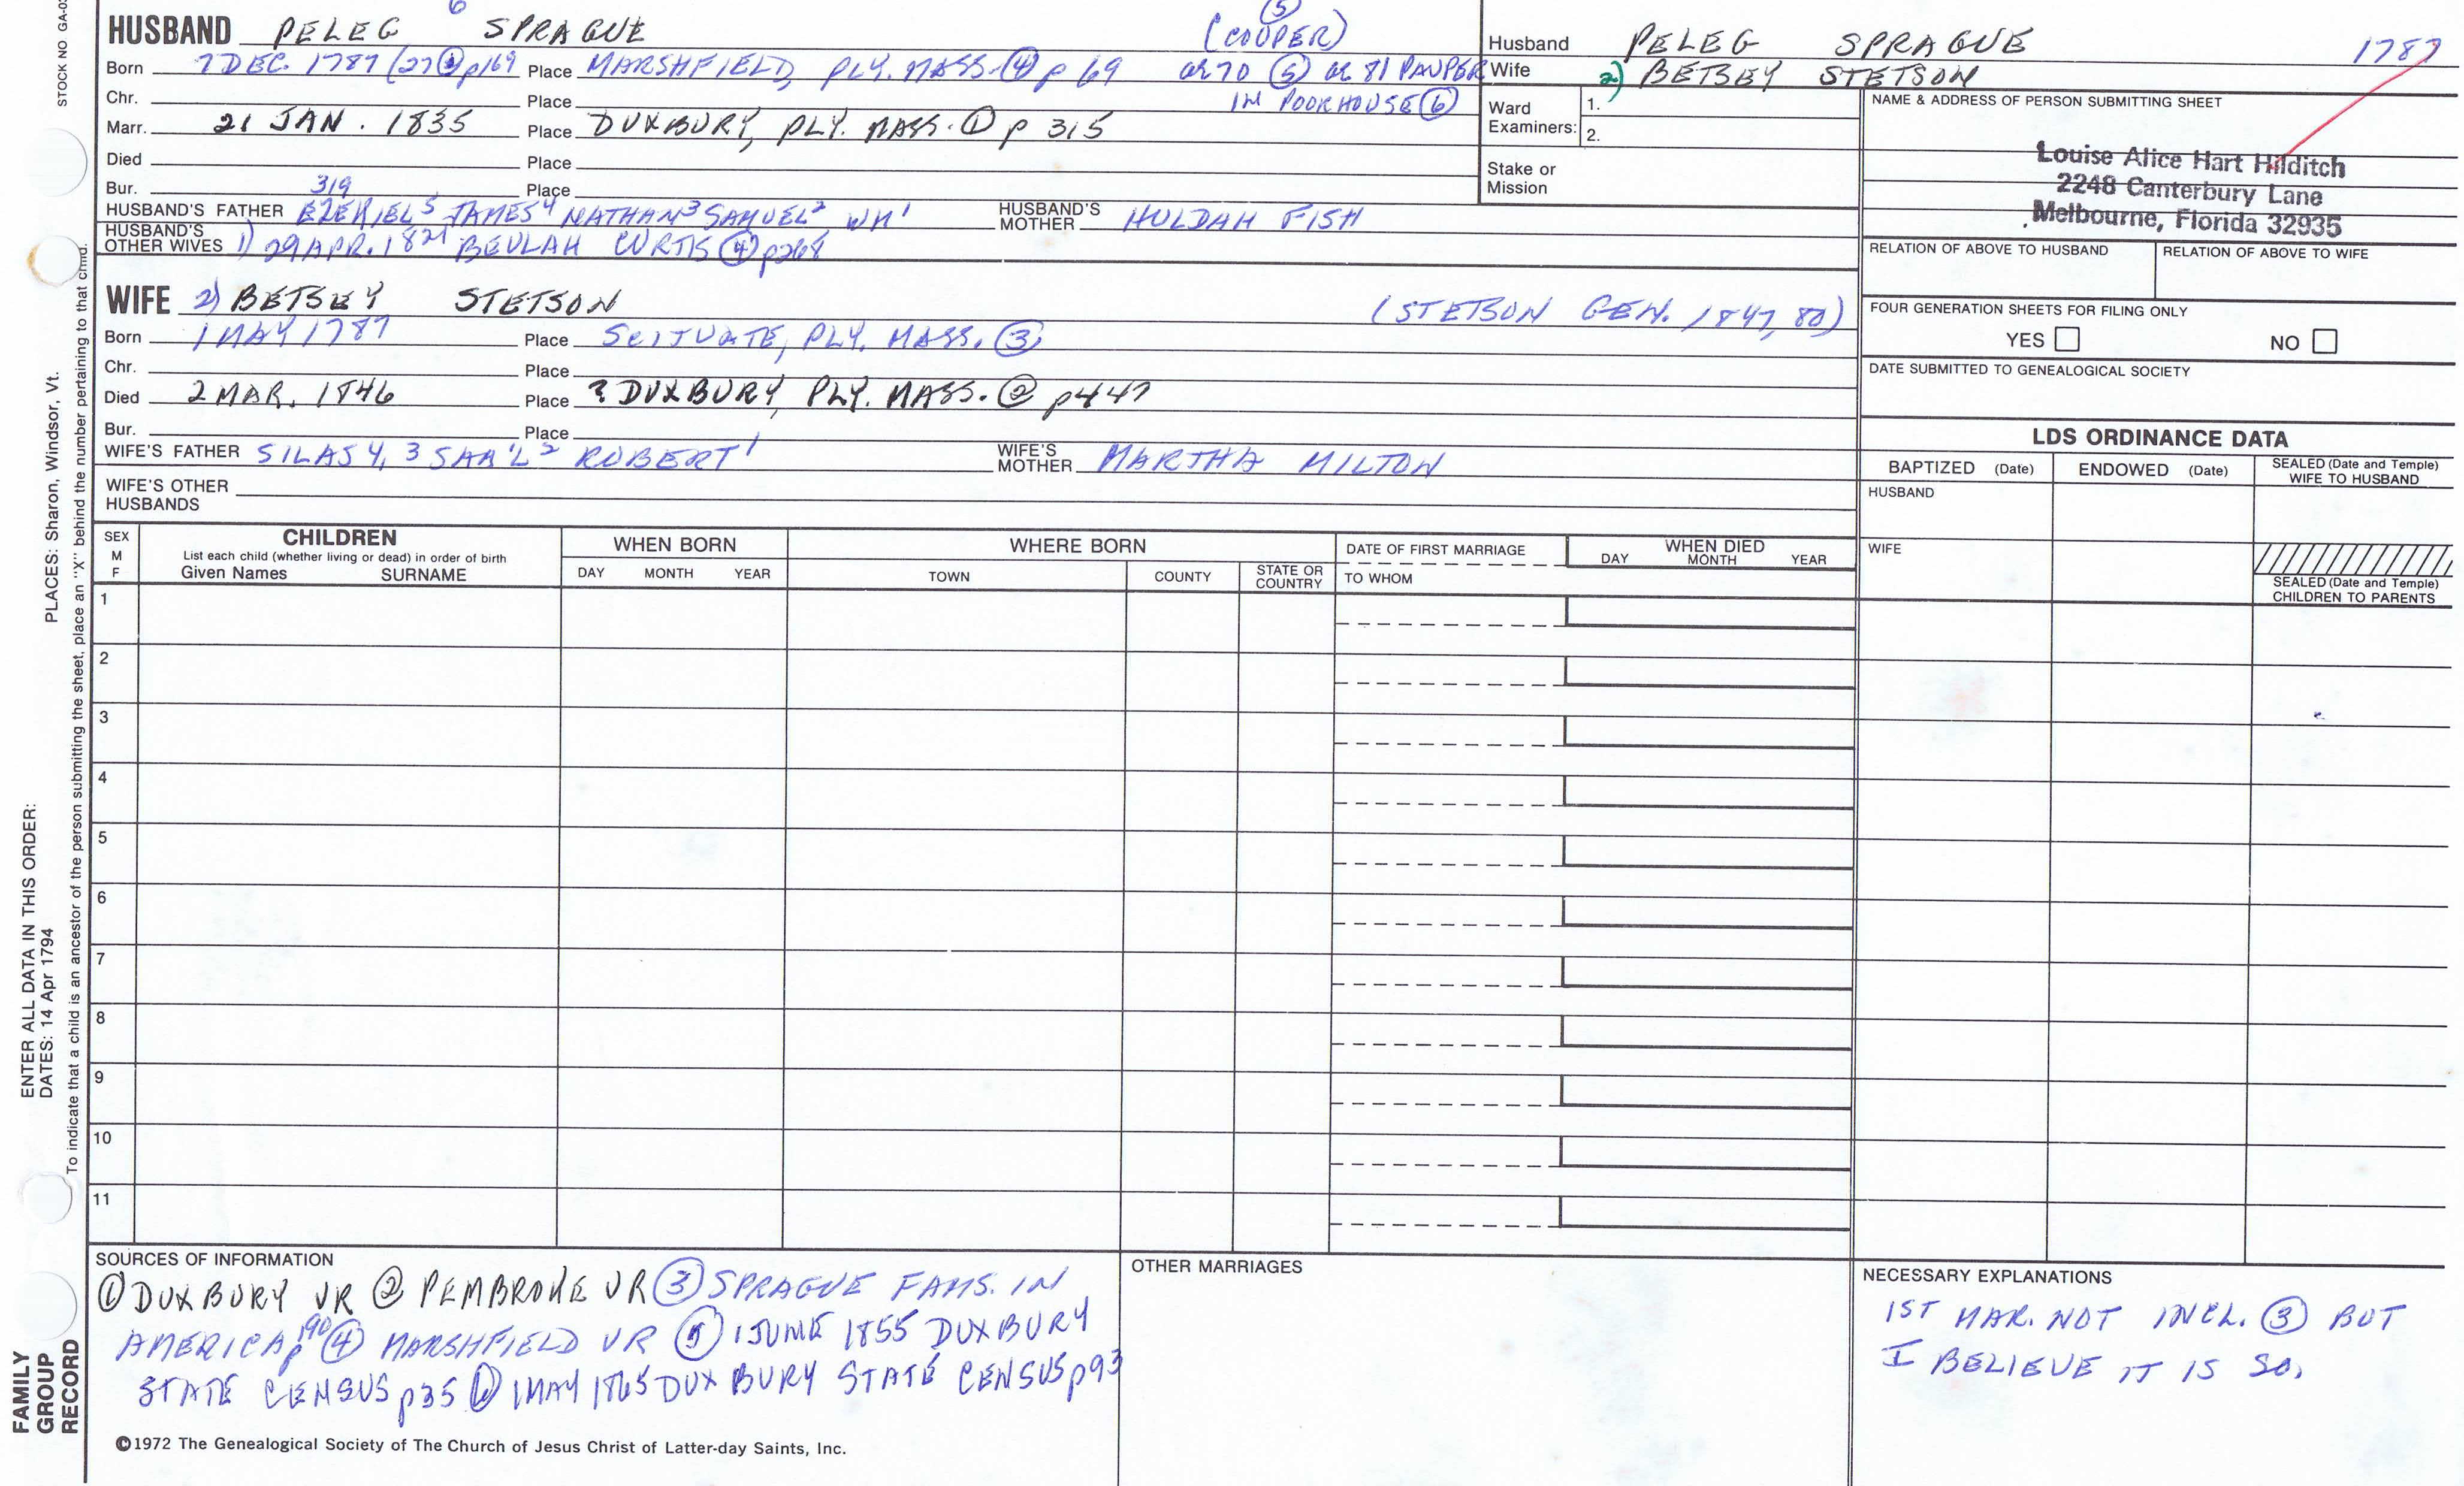 STOCK NO GA-0
6
HUSBAND PELEG SPRAGUE (COOPER) (5)
Born 7 DEC. 1787 (27 p169 Place MARSHFIELD, PLY. MASS. (4) p 69 ae 70 (5) ae 81 PAUPER
IN POORHOUSE (6)
Chr. Place
Marr. 21 JAN. 1835 Place DUXBURY, PLY. MASS. (1) p 315
Died Place
Bur. Place
319
HUSBAND'S FATHER EZEKIEL5 JAMES4 NATHAN3 SAMUEL2 WM1 HUSBAND'S MOTHER HULDAH FISH
HUSBAND'S OTHER WIVES 1) 29 APR. 1821 BEULAH CURTIS (4) p268
WIFE 2) BETSEY STETSON (STETSON GEN. 1847, 80)
Born 1 MAY 1787 Place SCITUATE, PLY. MASS. (3)
Chr. Place
Died 2 MAR. 1846 Place ? DUXBURY, PLY. MASS. (2) p447
Bur. Place
WIFE'S FATHER SILAS 4, 3 SAM'L2 ROBERT1 WIFE'S MOTHER MARTHA MILTON
WIFE'S OTHER HUSBANDS
Husband PELEG SPRAGUE 1787
Wife 2) BETSEY STETSON
Ward Examiners: 1.
2.
Stake or Mission
NAME & ADDRESS OF PERSON SUBMITTING SHEET
Louise Alice Hart Hilditch
2248 Canterbury Lane
Melbourne, Florida 32935
RELATION OF ABOVE TO HUSBAND RELATION OF ABOVE TO WIFE
FOUR GENERATION SHEETS FOR FILING ONLY
YES NO
DATE SUBMITTED TO GENEALOGICAL SOCIETY
LDS ORDINANCE DATA
BAPTIZED (Date) ENDOWED (Date) SEALED (Date and Temple) WIFE TO HUSBAND
HUSBAND
WIFE
SEALED (Date and Temple) CHILDREN TO PARENTS
SEX M F
CHILDREN
List each child (whether living or dead) in order of birth
Given Names SURNAME
WHEN BORN
DAY MONTH YEAR
WHERE BORN
TOWN COUNTY STATE OR COUNTRY
DATE OF FIRST MARRIAGE
TO WHOM
WHEN DIED
DAY MONTH YEAR
1
2
3
4
5
6
7
8
9
10
11
SOURCES OF INFORMATION
(1) DUXBURY VR (2) PEMBROKE VR (3) SPRAGUE FAMS. IN
AMERICA p190 (4) MARSHFIELD VR (5) 1 JUNE 1855 DUXBURY
STATE CENSUS p35 (6) 1 MAY 1865 DUXBURY STATE CENSUS p93
©1972 The Genealogical Society of The Church of Jesus Christ of Latter-day Saints, Inc.
OTHER MARRIAGES
NECESSARY EXPLANATIONS
1ST MAR. NOT INCL. (3) BUT
I BELIEVE IT IS SO.
PLACES: Sharon, Windsor, Vt.
ENTER ALL DATA IN THIS ORDER:
DATES: 14 Apr 1794
To indicate that a child is an ancestor of the person submitting the sheet, place an "X" behind the number pertaining to that child.
FAMILY
GROUP
RECORD